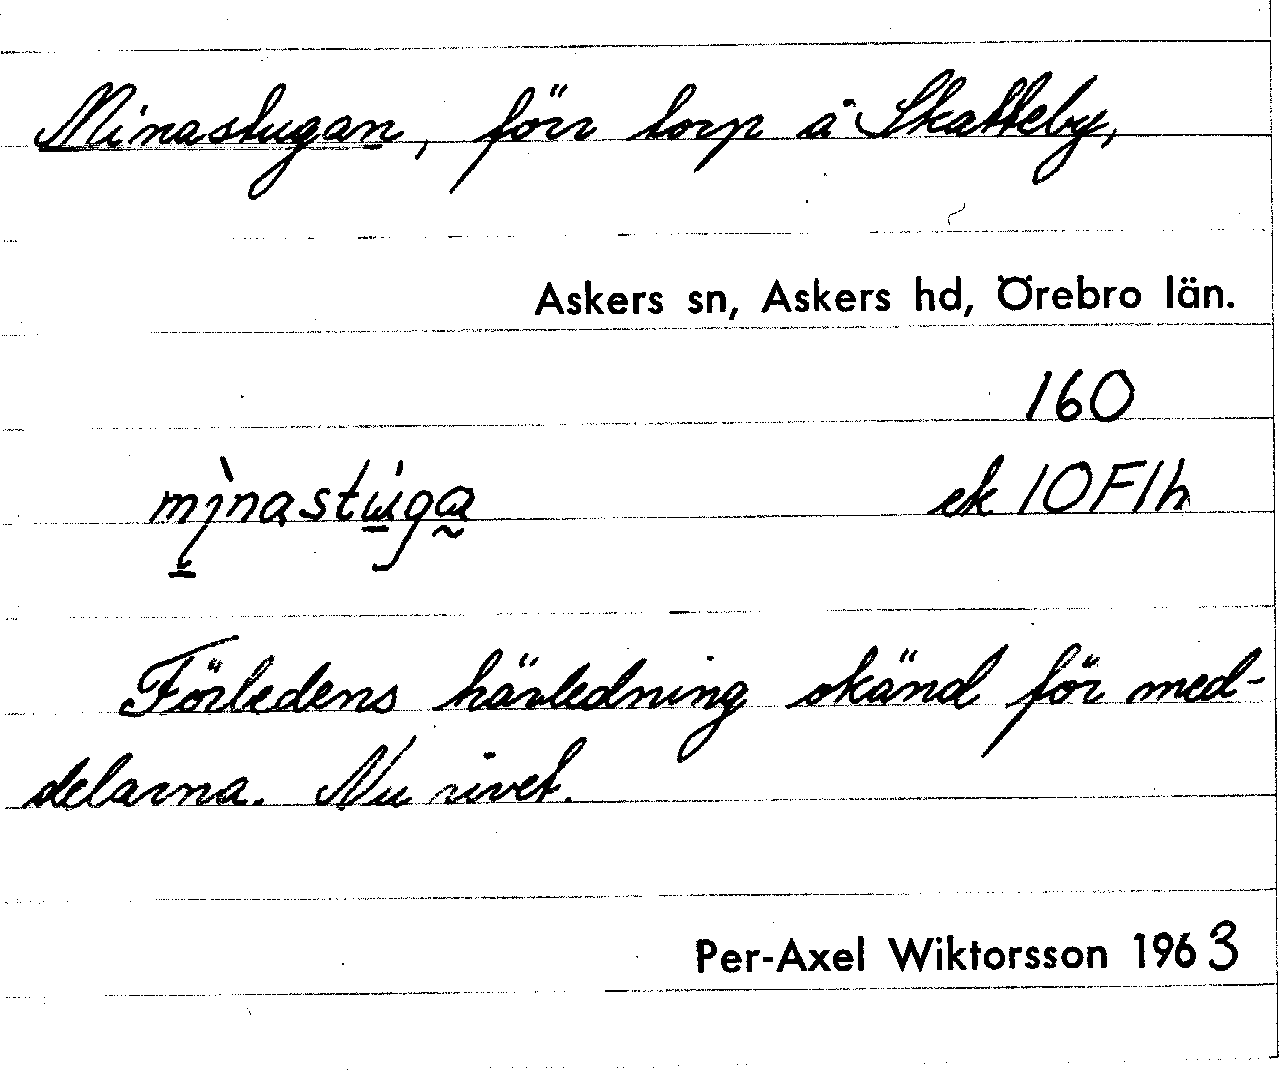 Minastugan, förr torp å Skatteby,
Askers sn, Askers hd, Örebro län.
160
mìnastúga ek 10F1h
Förledens härledning okänd för med-
delarna. Nu rivet.
Per-Axel Wiktorsson 1963